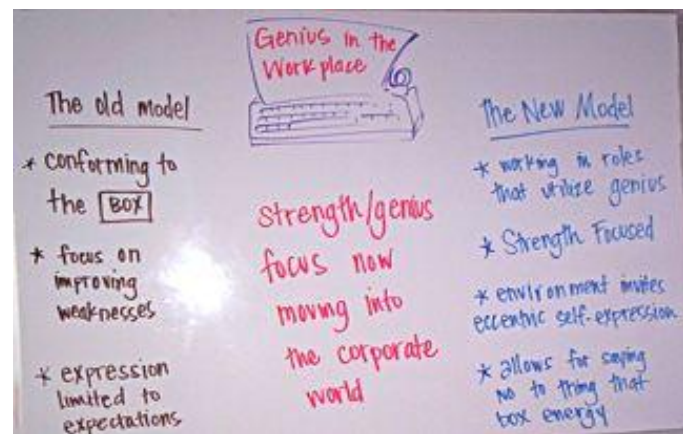 Genius in the
Workplace
The old model
* conforming to
the BOX
* focus on
improving
weaknesses
* expression
limited to
expectations
strength/genius
focus now
moving into
the corporate
world
The New Model
* working in roles
that utilize genius
* Strength Focused
* environment invites
eccentric self-expression
* allows for saying
No to thing that
box energy